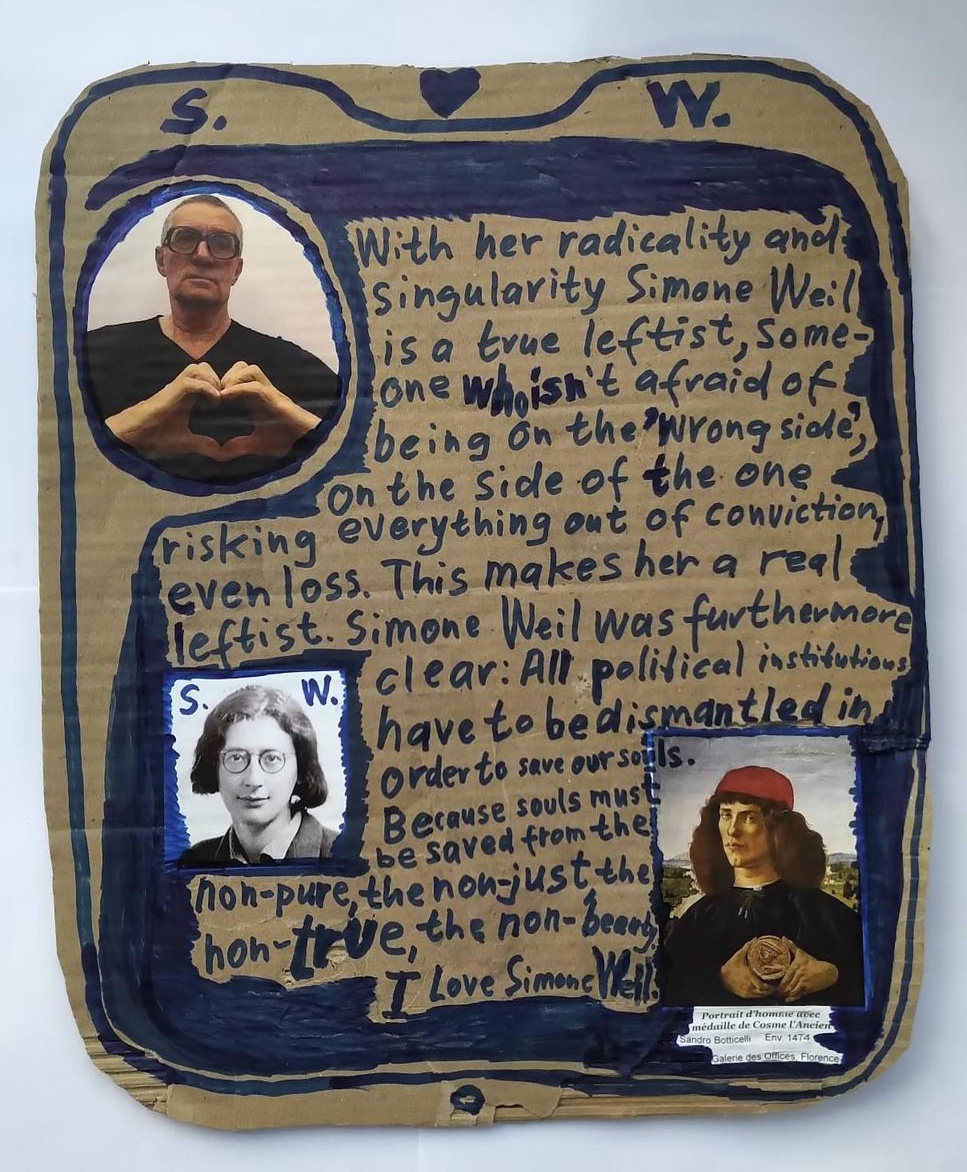 S. W.
With her radicality and
singularity Simone Weil
is a true leftist, some-
one who isn't afraid of
being on the "wrong side",
on the side of the one
risking everything out of conviction,
even loss. This makes her a real
leftist. Simone Weil was furthermore
clear: All political institutions
have to be dismantled in
order to save our souls.
S. W.
Because souls must
be saved from the
non-pure, the non-just, the
non-true, the non-beauty.
I Love Simone Weil.
Portrait d'homme avec
médaille de Cosme l'Ancien
Sandro Botticelli Env. 1474
Galerie des Offices, Florence